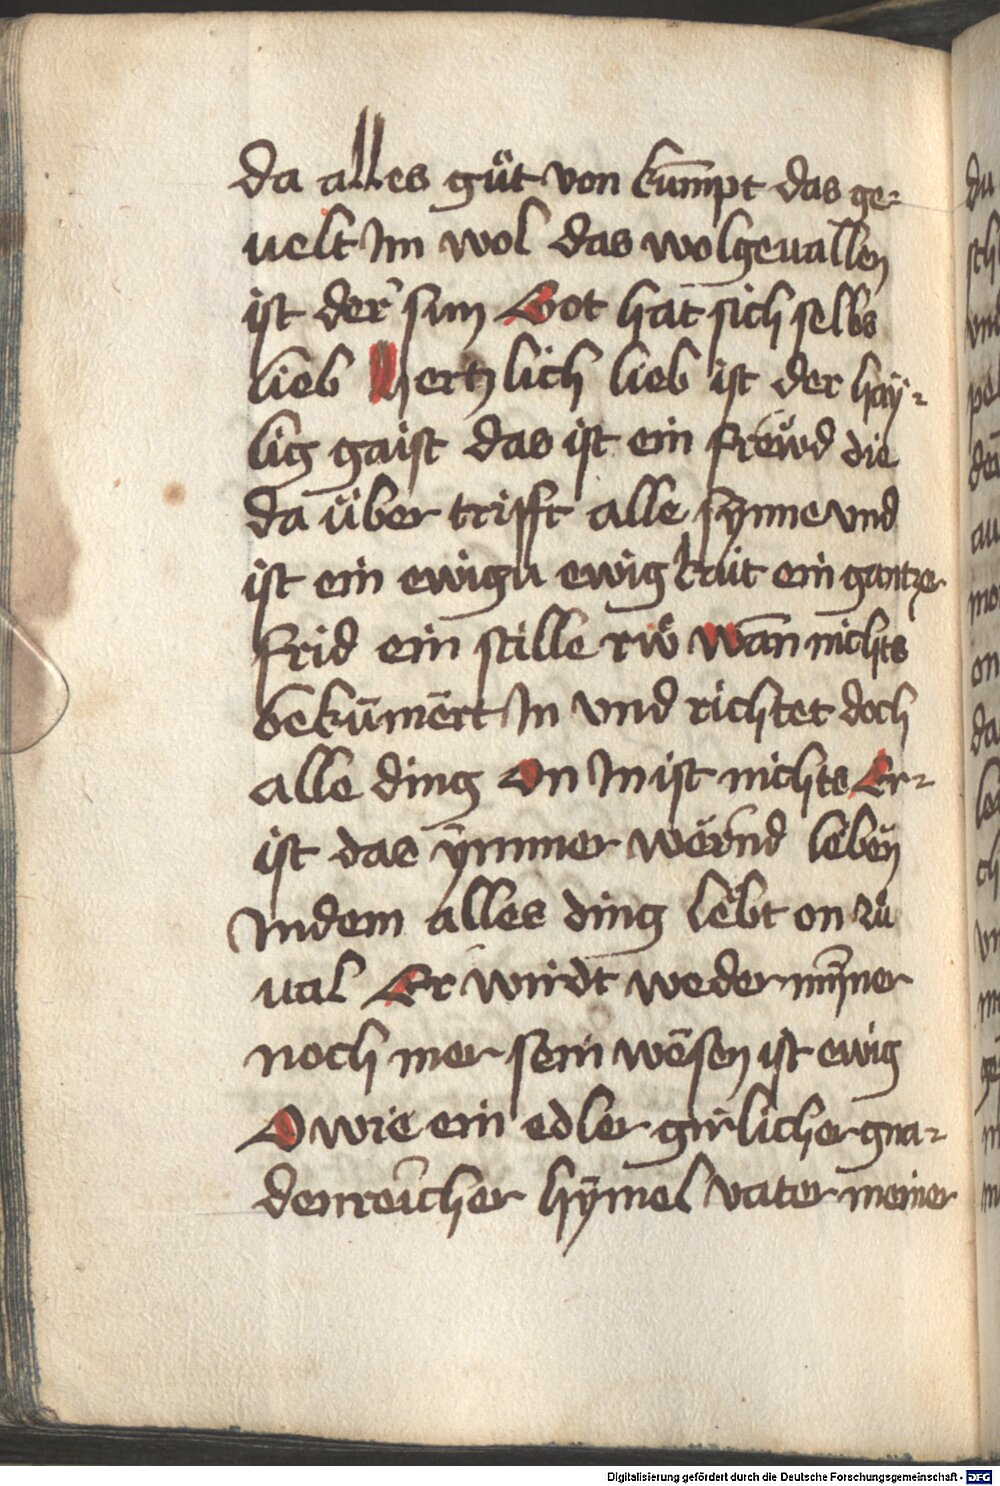 da alles guͤt von kumpt das ge-
uelt Im wol das wolgeuallen
ist der sun Got hat sich selbs
lieb hertzlich lieb ist der hay-
lig gaist das ist ein frewd die
da über trifft alle synne vnd
ist ein ewigu ewigkait ein gantzer
frid ein stille rwͦ wan nichts
bekümert In vnd richtet doch
alle ding On In ist nichts Er-
ist das ÿmmer wernd leben
Indem alles ding lebt on zuͦ
ual Er wirdt weder mÿner
noch mer sein wesen ist ewig
O wie ein edler girlicher gna-
denreicher hÿmel vater meiner
Digitalisierung gefördert durch die Deutsche Forschungsgemeinschaft - DFG